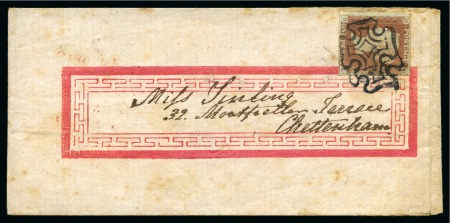 Miss Tinling
39. Montpellier Terrace
Cheltenham